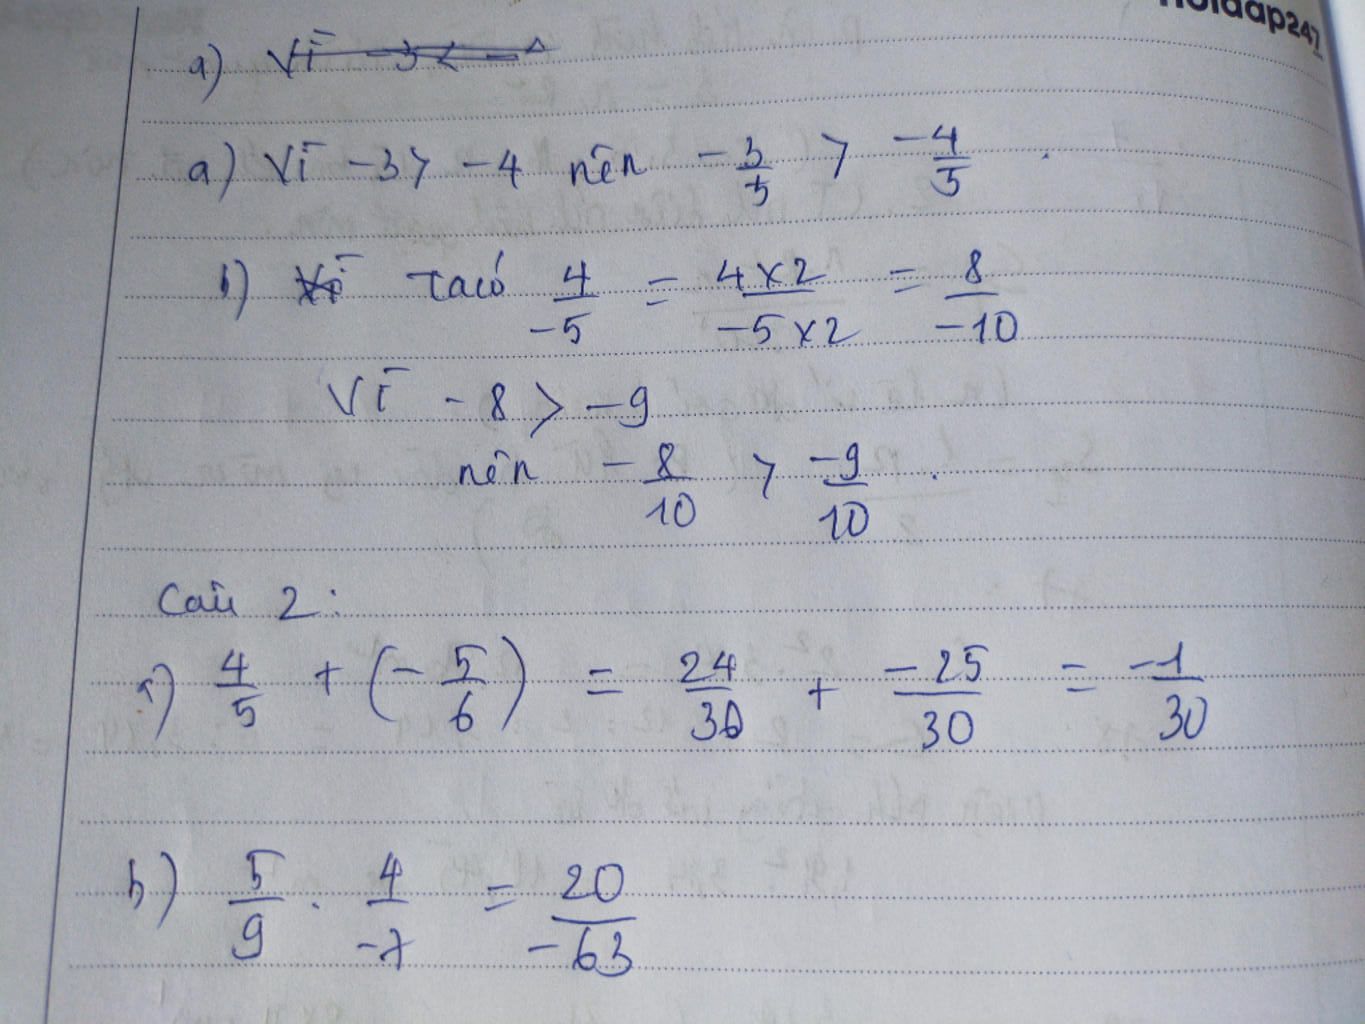 Hoidap247
a) Vì -3 < -4
a) Vì -3 > -4 nên -3/5 > -4/5.
b) Vì Ta có 4/-5 = 4x2/-5x2 = 8/-10
Vì -8 > -9
nên -8/10 > -9/10.
Câu 2:
a) 4/5 + (-5/6) = 24/30 + -25/30 = -1/30
b) 5/9 . 4/-7 = 20/-63